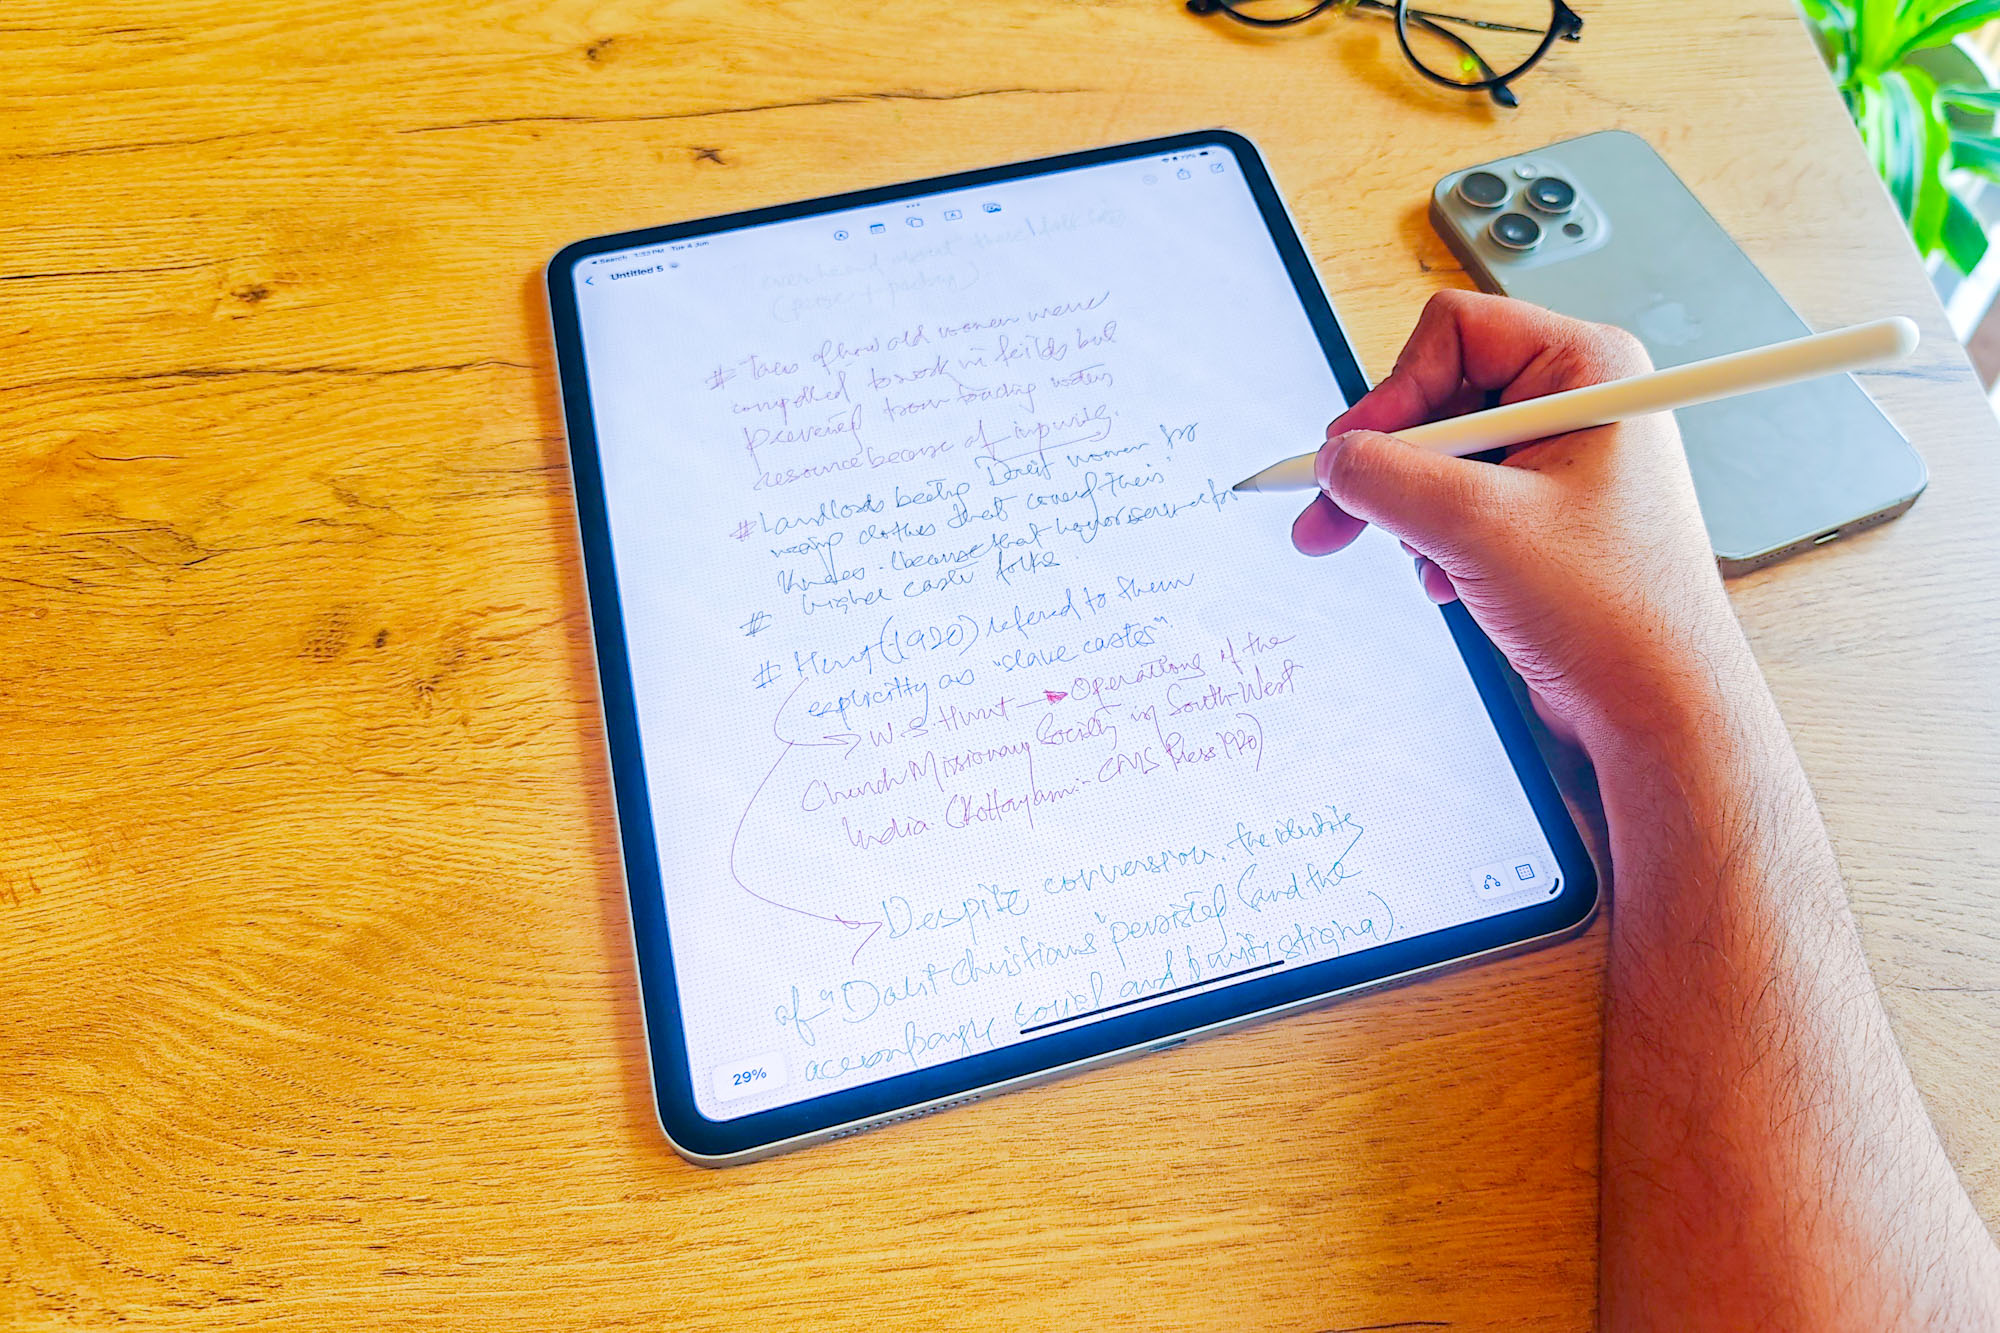 Search 1:33 PM Tue 4 Jun
Untitled 5
over hand about these folk
# Tales of how old women were
compelled to work in feilds but
prevented from touching water
resource because of impurity.
# Landlords beating Dalit women for
wearing clothes that coverd their
Knees. (because that honor reserved for
higher caste folks.
#
# Hunt (1920) refered to them
explicitly as "slave castes"
W.S. Hunt → Operations of the
Church Missionary Society in South-West
India (Kottayam:- CMS Press 1920)
Despite conversion, the identity
of "Dalit Christians" persisted (and the
social and purity stigma).
29%